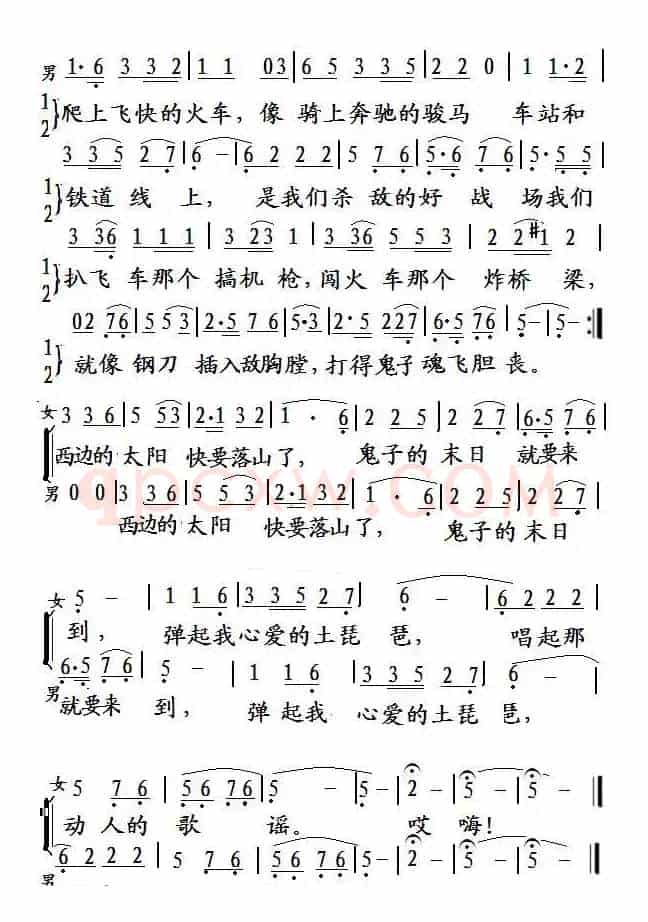 男 1·6 332 | 11 03 | 65 335 | 22 0 | 11·2 |
1 2 }爬上飞快的火车, 像 骑上奔驰的骏马 车站和
3 335 | 2 27 | 6 – | 6 22 | 335 | 2 7 | 6·6 76 | 5·5 35 |
1 2 }铁道 线 上, 是我们杀 敌的好 战 场我们
3 336 | 111 | 3 23 1 | 3 336 | 553 | 2 2#1 2 |
1 2 }扒飞 车那个 搞机 枪, 闯火 车那个 炸桥 梁,
02 76 | 553 | 2·5 776 | 5·3 | 2·5 227 | 6·5 76 | 5 – | 5 – :‖
1 2 }就像 钢刀 插入敌胸膛, 打得鬼子 魂飞胆 丧。
女 3 36 | 5 53 | 2·1 32 | 1 · 6 | 2 2 2 | 2 27 | 6·5 76 |
西边的 太阳 快要落山了, 鬼子的 末日 就要来
男 0 0 | 3 36 | 5 53 | 2·1 32 | 1 · 6 | 2 2 2 | 2 27 |
西边的 太阳 快要落山了, 鬼子的 末日
qpcxw.com
女 5 – | 1 16 | 335 27 | 6 – | 6 222 |
到, 弹起我心爱的土琵 琶, 唱起那
男 6·5 76 | 5 – | 1 16 | 335 27 | 6 – |
就要来 到, 弹 起我 心爱的土琵 琶,
女 5 76 | 56 76 | 5 – | 5 – | 2 – | 5 – | 5 – ‖
动 人的 歌 谣。 哎 嗨!
男 6 222 | 5 76 | 56 76 | 5 – | 2 – | 5 – | 5 – ‖